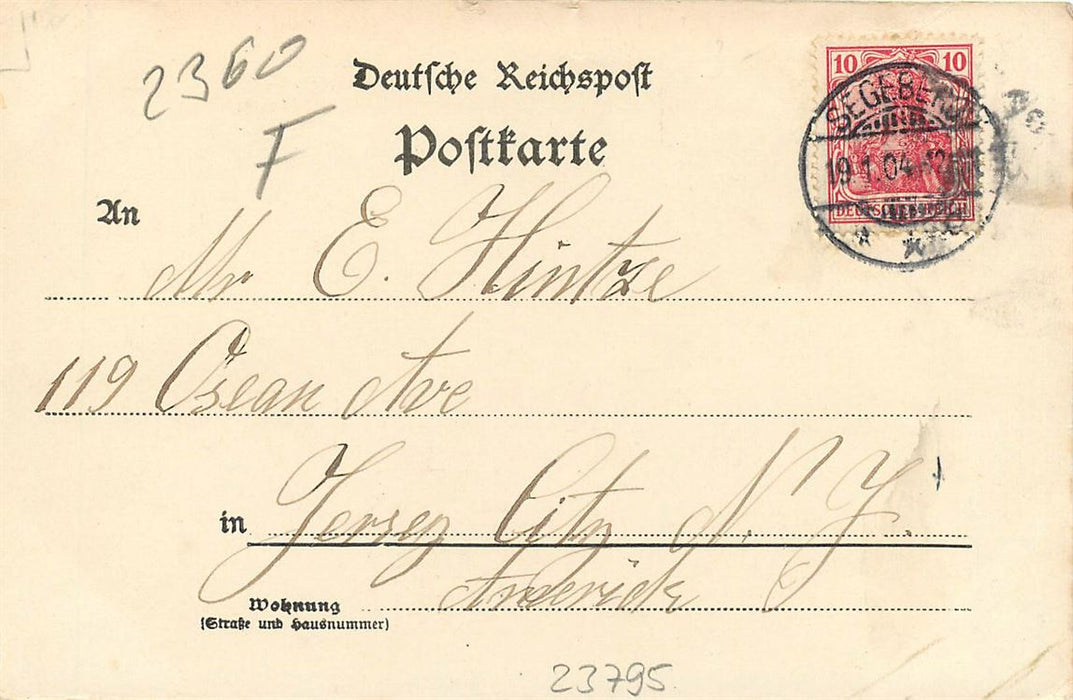 2360
F
Deutsche Reichspost
Postkarte
10 10
SEGEBERG
19.1.04
DEUTSCHES REICH
An
Mr E. Hintze
119 Osean Ave
in Jersey City N. J.
Americk
Wohnung
(Straße und Hausnummer)
23795